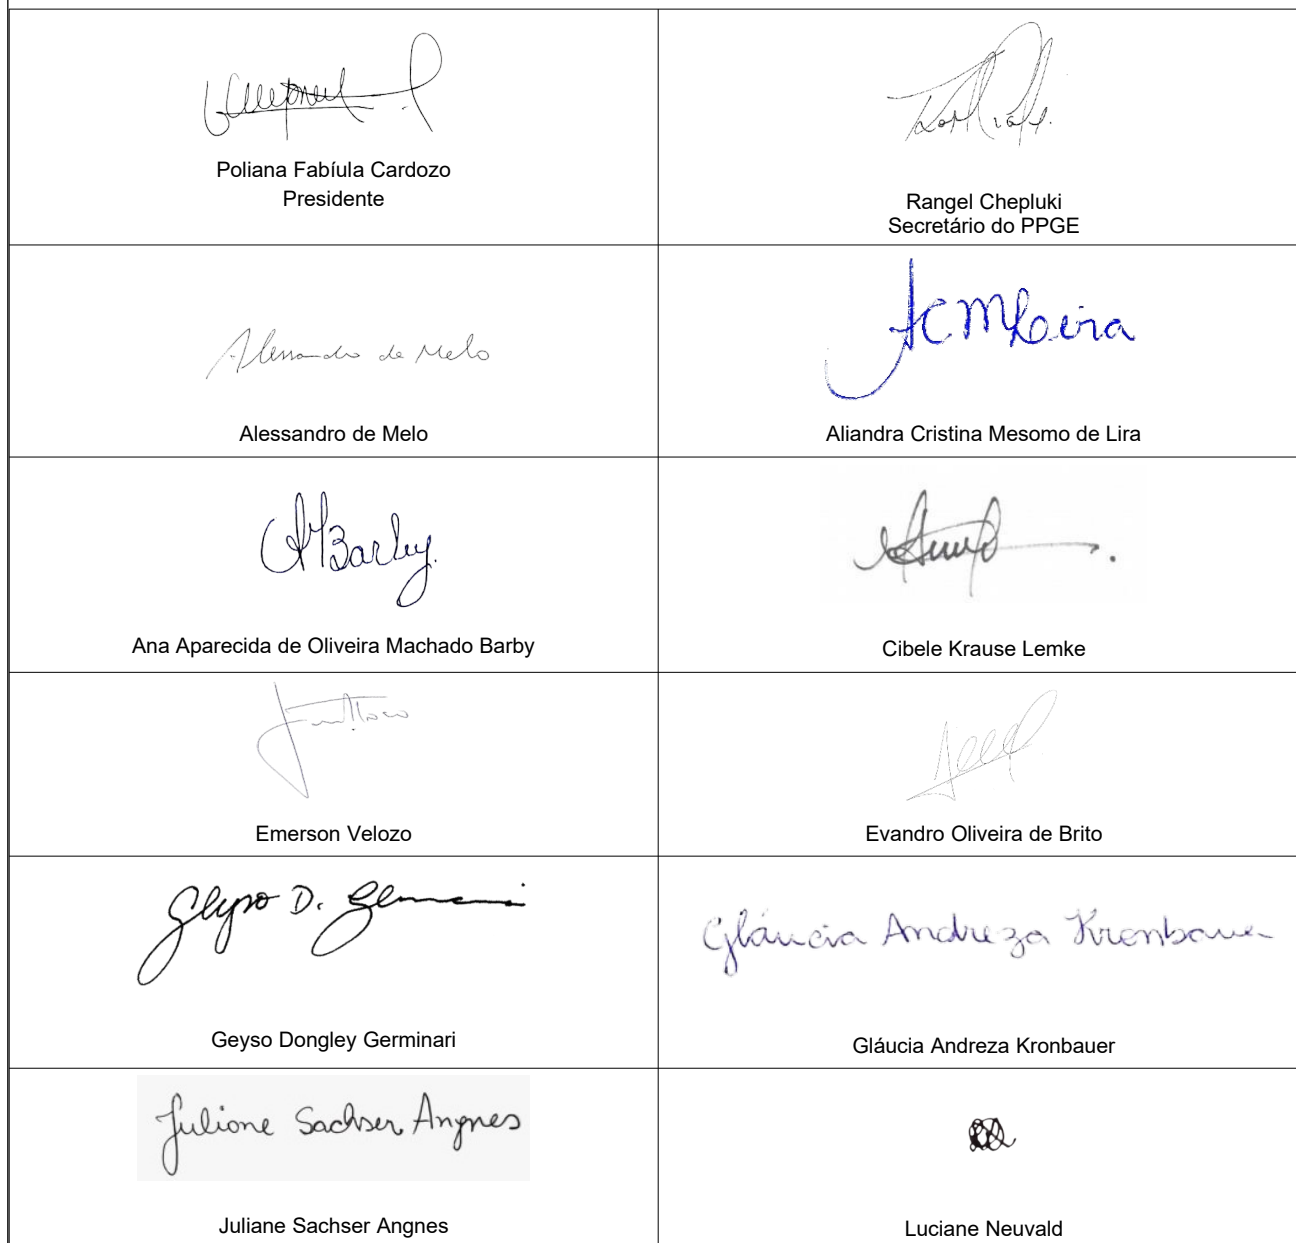 Poliana Fabíula Cardozo
Presidente
Rangel Chepluki
Secretário do PPGE
Alessandro de Melo
Alessandro de Melo
ACMLira
Aliandra Cristina Mesomo de Lira
Barby
Ana Aparecida de Oliveira Machado Barby
Cibele Krause Lemke
Emerson Velozo
Evandro Oliveira de Brito
Geyso D.
Geyso Dongley Germinari
Gláucia Andreza Kronbauer
Gláucia Andreza Kronbauer
Juliane Sachser Angnes
Juliane Sachser Angnes
Luciane Neuvald